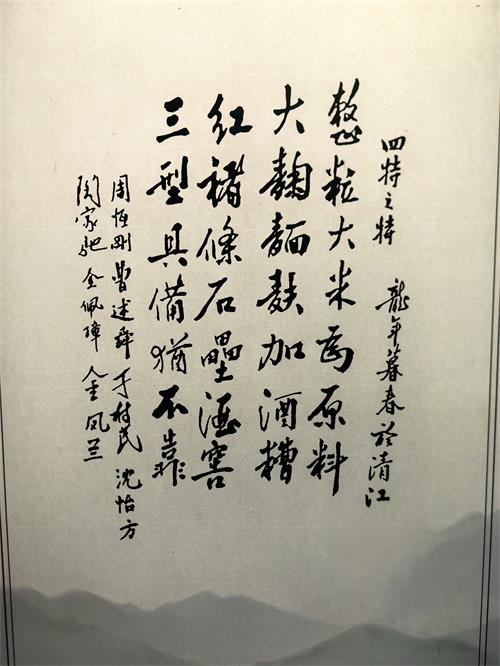 四特之特 龍年暮春於清江
整粒大米为原料
大麯麺麸加酒糟
红褚條石壘酒窖
三型具備猶不靠
周恆刚 曹述舜 于树民 沈怡方
陶家驰 金佩璋 金凤兰